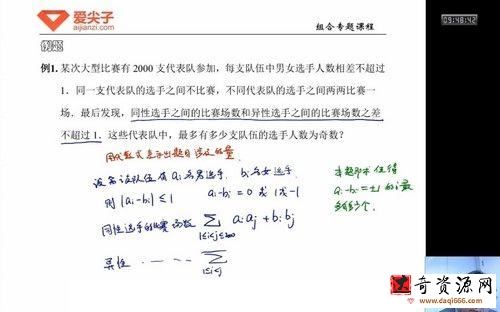 爱尖子
aijianzi.com
组合专题课程
09:48:42
例题
例1. 某次大型比赛有 2000 支代表队参加，每支队伍中男女选手人数相差不超过
1．同一支代表队的选手之间不比赛，不同代表队的选手之间两两比赛一
场．最后发现，同性选手之间的比赛场数和异性选手之间的比赛场数之差
不超过 1．这些代表队中，最多有多少支队伍的选手人数为奇数？
用代数式表示出题目涉及的量.
设第i支队伍有 aᵢ 名男选手, bᵢ 名女选手
则 |aᵢ-bᵢ| ≤ 1 aᵢ-bᵢ = 0 或 1 或 -1
同性选手的比赛场数 ∑ aᵢaⱼ + bᵢbⱼ
1≤i<j≤2000
异性 · — · · ∑
1≤i<j
本题即求 使得
aᵢ-bᵢ=±1 的 i 最
多有多少个.
奇资源网
www.daqi666.com